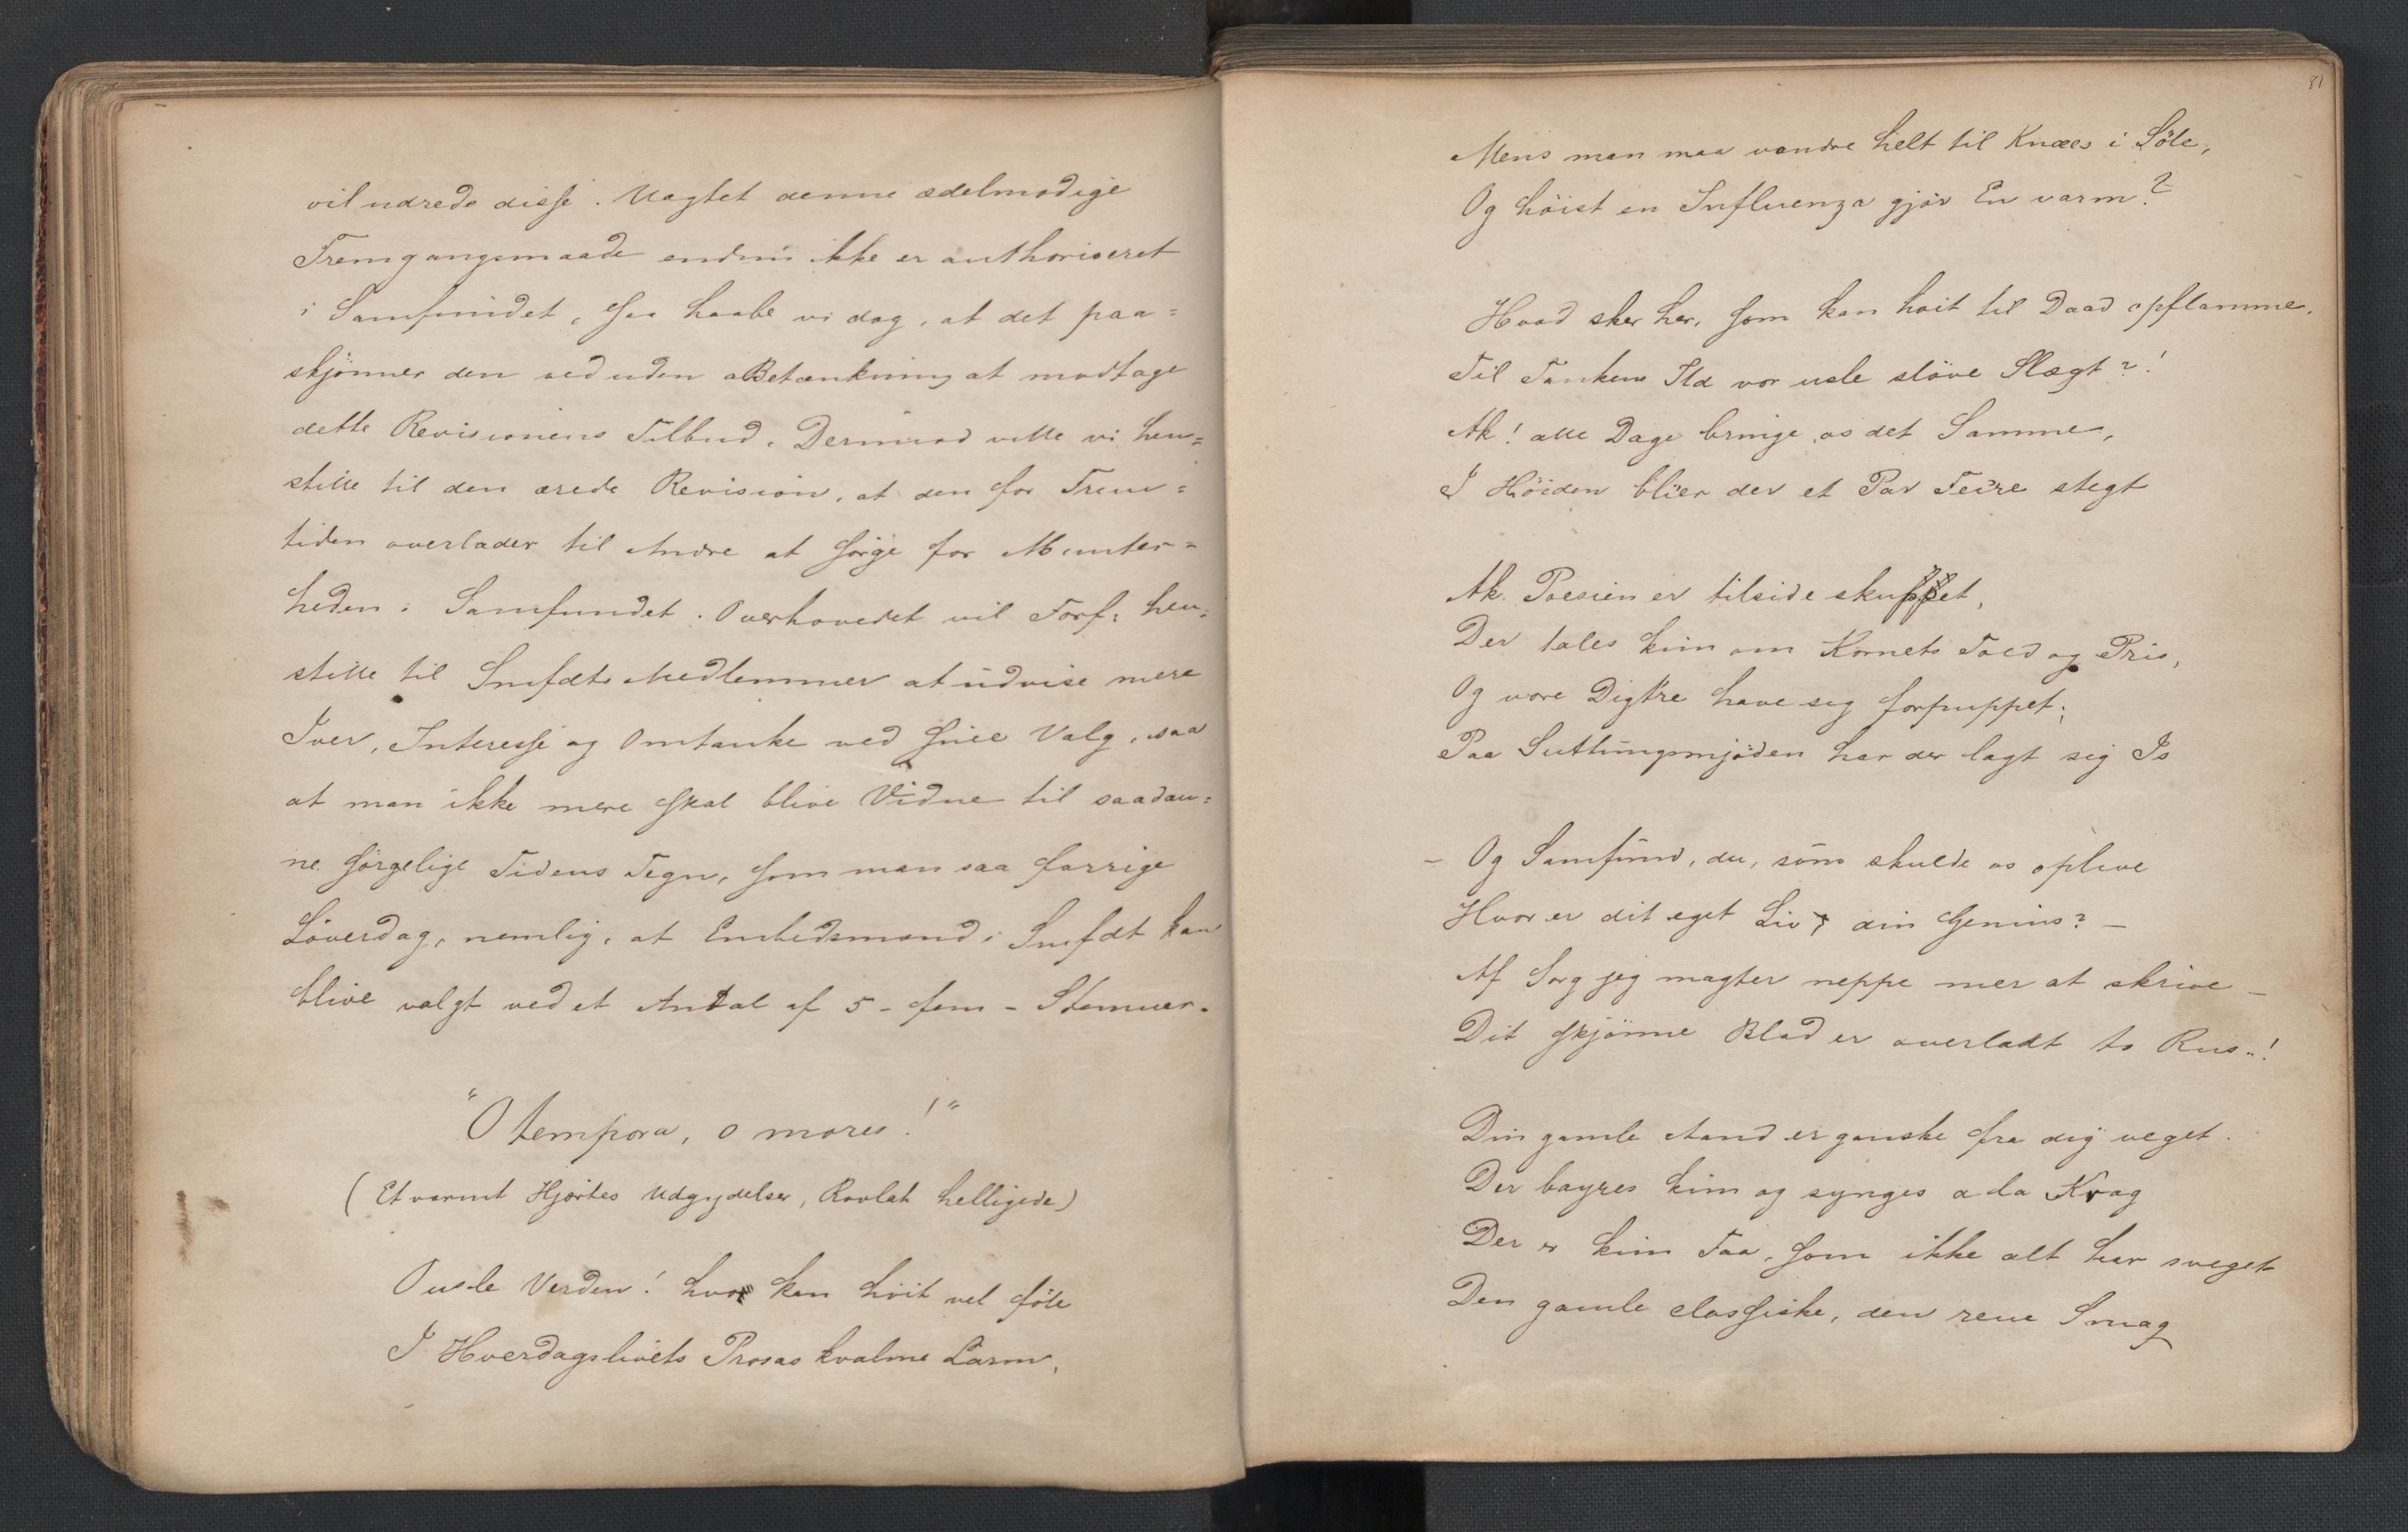 vil udrede disse. Uagtet denne ædelmodige
Fremgangsmaade endnu ikke er authoriseret
i Samfundet, saa haabe vi dog, at det paa=
skjønner den ved uden Betænkning at modtage
dette Revisionens Tilbud. Derimod ville vi hen=
stille til den ærede Revision, at den for Frem=
tiden overlader til Andre at sørge for Munter=
heden i Samfundet. Overhovedet vil Forf: hen:
stille til Smfdts Medlemmer at udvise mere
Iver, Interesse og Omtanke ved sine Valg, saa
at man ikke mere skal blive Vidne til saadan=
ne sørgelige Tidens Tegn, som man saa forrige
Löverdag, nemlig, at Embedsmænd i Smfdt kan
blive valgt ved et Antal af 5 - fem - Stemmer.
"O tempora, o mores!"
(Et varmt Hjertes Udgydelser, Ravlah helligede)
O usle Verden! hvor kan höit vel föle
I Hverdagslivets Prosas kvalme Larm,
81
Mens man maa vandre helt til Knæes i Söle,
Og höist en Influenza gjör En varm?
Hvad sker her, som kan höit til Daad opflamme,
Til Tankens Ild vor usle slöve Slægt?!
Ak! alle Dage bringe os det Samme,
I Höiden blier der et Par Feire stegt
Ak. Poesien er tilside skuppet,
Der tales kun om Kornets Told og Pris,
Og vore Digtre have sig forpuppet;
Paa Suttungsmjöden har der lagt sig Is
- Og Samfund, du, som skulde os oplive
Hvor er dit eget Liv, din Genius? -
Af Sorg jeg magter neppe mer at skrive -
Dit skjönne Blad er overladt to Rus..!
Din gamle Aand er ganske fra dig veget.
Der bayres kun og synges a la Krag
Der er kun Faa, som ikke alt har sveget
Den gamle classiske, den rene Smag